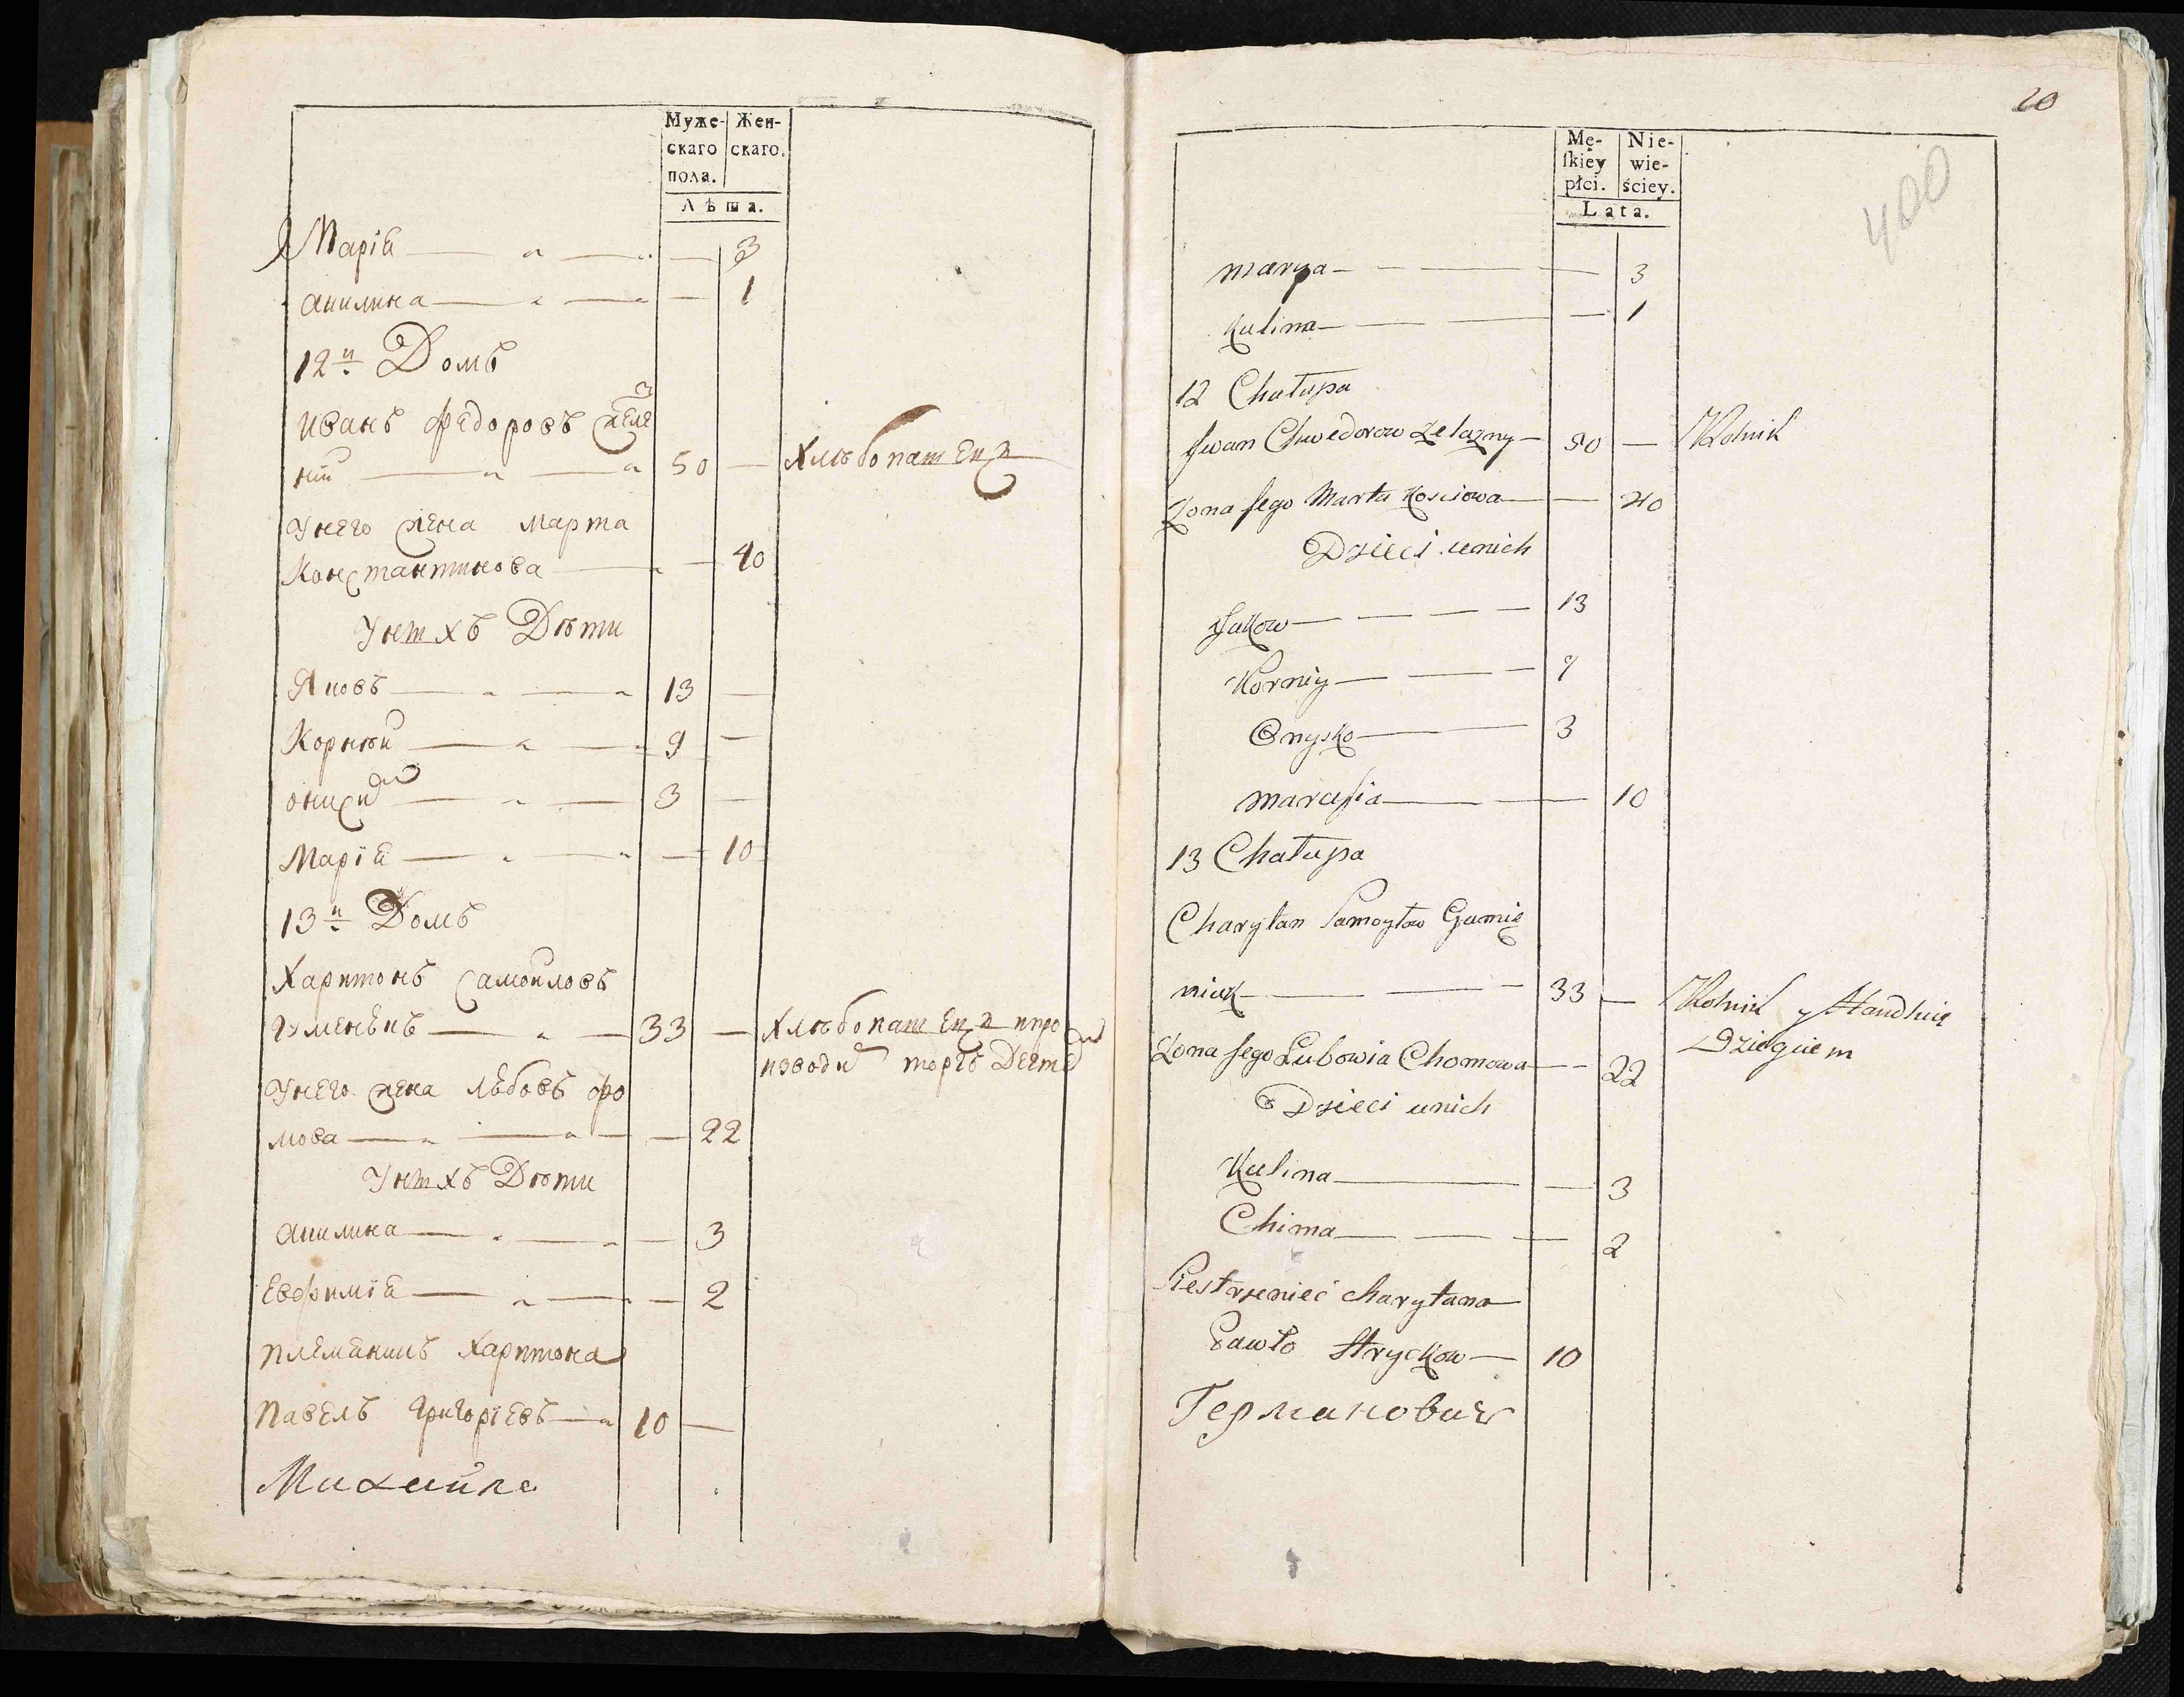 Муже- Жен-
скаго скаго.
пола.
Лѣта.
Марія 3
Акилина 1
12й Домъ
Иванъ Федоровъ желез
ній 50 — Хлѣбопашецъ
Унего жена Марта
Константинова — 40
Унихъ Дѣти
Яковъ 13 —
Корнѣй 9 —
Онисим 3 —
Марія — 10
13й Домъ
Харитонъ Самойловъ
Гуменюкъ 33 — Хлѣбопашецъ ипро
изводит торгъ Дегтем
Унего жена Любовь фо
мова — 22
Унихъ Дѣти
Акилина — 3
Евфимія — 2
Племянникъ Харитона
Павелъ Григоріевъ 10 —
Михайла
20
400
Mę- Nie-
ſkiey wie-
płci. ściey.
Lata.
Marya — 3
Kulina — 1
12 Chałupa
Jwan Chwedorow Zelazny 50 — Rolnik
Zona Jego Marta Kosciowa — 40
Dzieci unich
Jakow 13
Korniy 9
Onysko 3
Marusia — 10
13 Chałupa
Charytan Samoyłow Gumie
niuk 33 — Rolnik y Handluie
Dziegciem
Zona Jego Lubowia Chomowa — 22
Dzieci unich
Kulina — 3
Chima — 2
Siestrzeniec Charytana
Pawło Hryckow 10
Германович